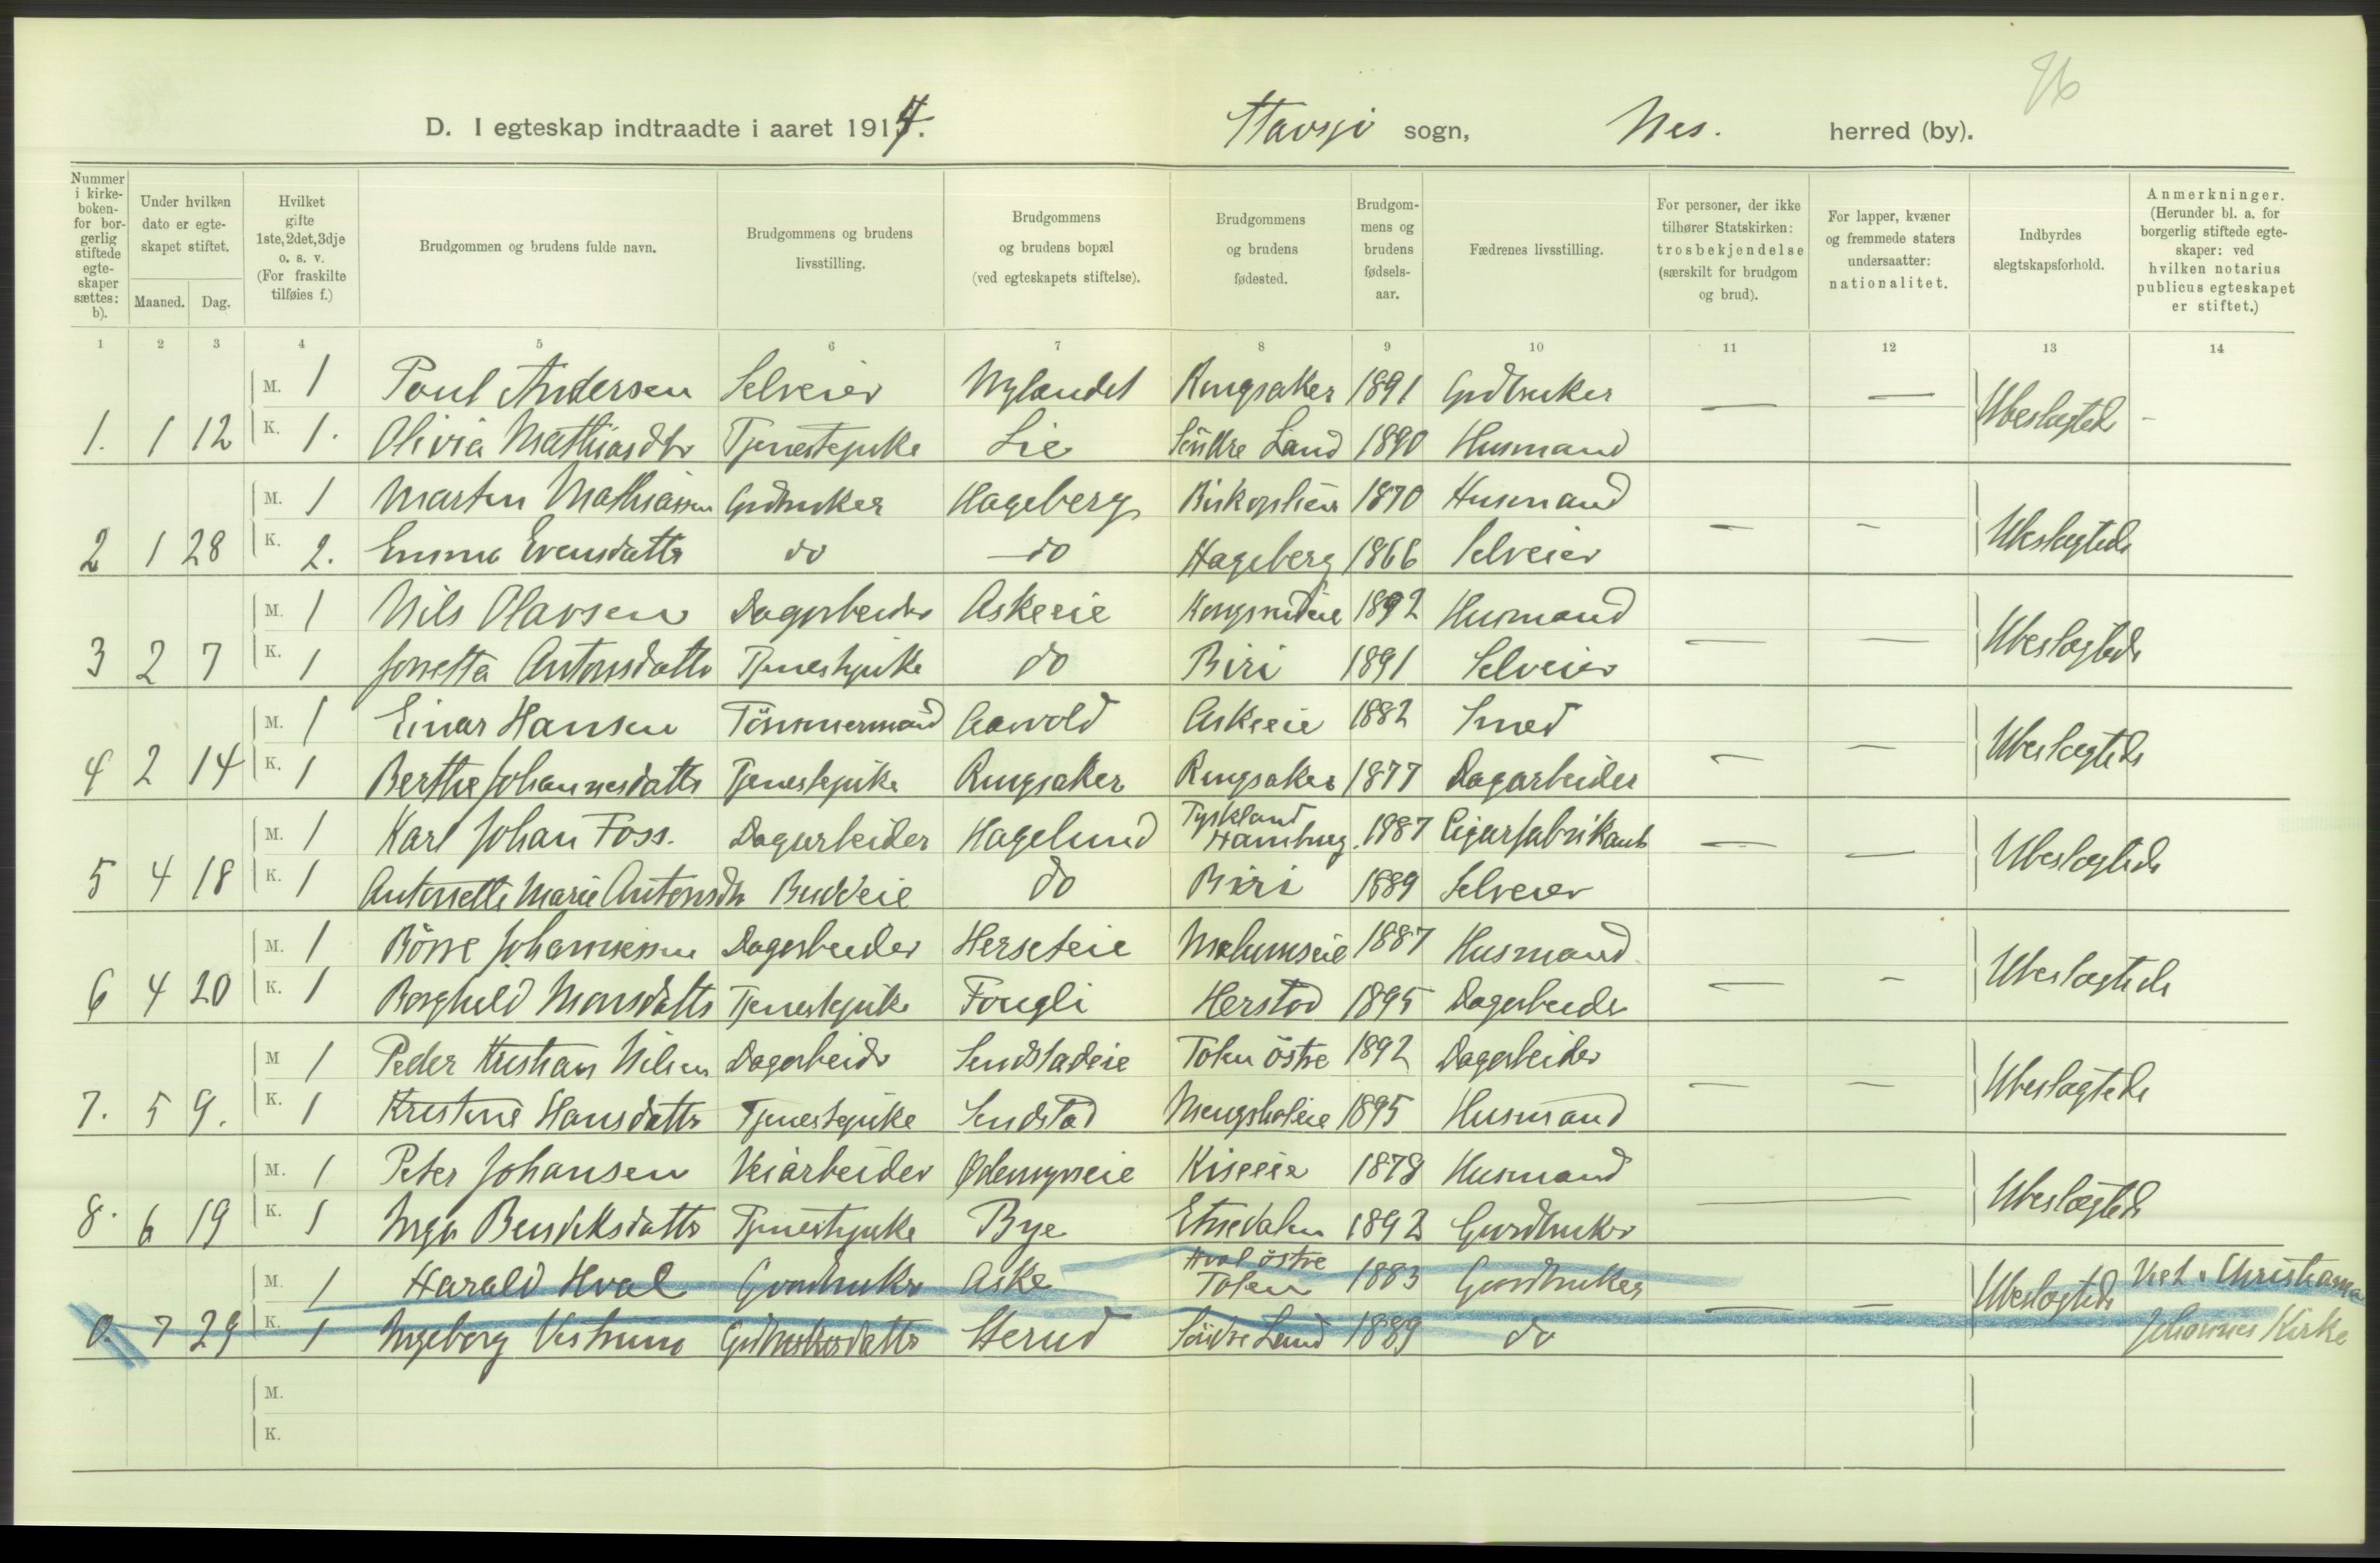 96
D. I egteskap indtraadte i aaret 1914. Stavsjø sogn, Nes. herred (by).
Nummer i kirke-boken- for bor-gerlig stiftede egte-skaper sættes: b).
Under hvilken dato er egte-skapet stiftet.
Maaned. Dag.
Hvilket gifte 1ste, 2det, 3dje o. s. v. (For fraskilte tilføies f.)
Brudgommen og brudens fulde navn.
Brudgommens og brudens livsstilling.
Brudgommens og brudens bopæl (ved egteskapets stiftelse).
Brudgommens og brudens fødested.
Brudgom-mens og brudens fødsels-aar.
Fædrenes livsstilling.
For personer, der ikke tilhører Statskirken: trosbekjendelse (særskilt for brudgom og brud).
For lapper, kvæner og fremmede staters undersaatter: nationalitet.
Indbyrdes slegtskapsforhold.
Anmerkninger. (Herunder bl. a. for borgerlig stiftede egte-skaper: ved hvilken notarius publicus egteskapet er stiftet.)
1 2 3 4 5 6 7 8 9 10 11 12 13 14
M. 1 Paul Andersen Selveier Nylandet Ringsaker 1891 Grdbruker — — Ubeslægted -
1. 1 12 K. 1. Olivia Mathiasdtr Tjenestepike Lie Søndre Land 1890 Husmand
M. 1 Martin Mathiassen Grdbruker Hageberg Biskoplien 1870 Husmand - - Ubeslægtede
2 1 28 K. 2. Emma Evensdattr do do Hageberg 1866 Selveier
M. 1 Nils Olavsen Dagarbeider Askeeie 1892 Husmand — — Ubeslægtede
3 2 7 K. 1 Josefta Antonsdattr Tjenestepike do Biri 1891 Selveier
M. 1 Einar Hansen Tömmermand Askeeie 1882 Smed - - Ubeslægtede
4 2 14 K. 1 Berthe Johannesdattr Tjenestepike Ringsaker Ringsaker 1877 Dagarbeider
M. 1 Karl Johan Foss. Dagarbeider Hagelund Tyskland Hamburg. 1887 Cigarfabrikant — — Ubeslægtede
5 4 18 K. 1 Antonette Marie Antonsdtr Budeie do Biri 1889 Selveier
M. 1 Johannessen Dagarbeider Herseteie 1887 Husmand — - Ubeslægtede
6 4 20 K. 1 Borghild Monsdattr Tjenestepike Fougli Herstad 1895 Dagarbeider
M 1 Peder Kristian Nilsen Dagarbeidr Sendstadeie Toten östre 1892 Dagarbeider — — Ubeslægtede
7. 5 9. K. 1 Kristine Hansdattr Tjenestepike Sendstad Mengsholeie 1895 Husmand
M. 1 Peter Johansen Veiarbeider Kiseeie 1879 Husmand — Ubeslægtede
8. 6 19 K. 1 Inga Bendiksdattr Tjenestepike Bye Etnedalen 1892 Gardbruker
M. 1 Harald Hval Gardbruker Aske Hval östre Toten 1883 Gardbruker — - Ubeslægtede Viet i Christiania
7 29 K. 1 Ingeborg Vestrum Grdbrukerdattr Sterud Söndre Land 1889 do Johannes Kirke
M.
K.